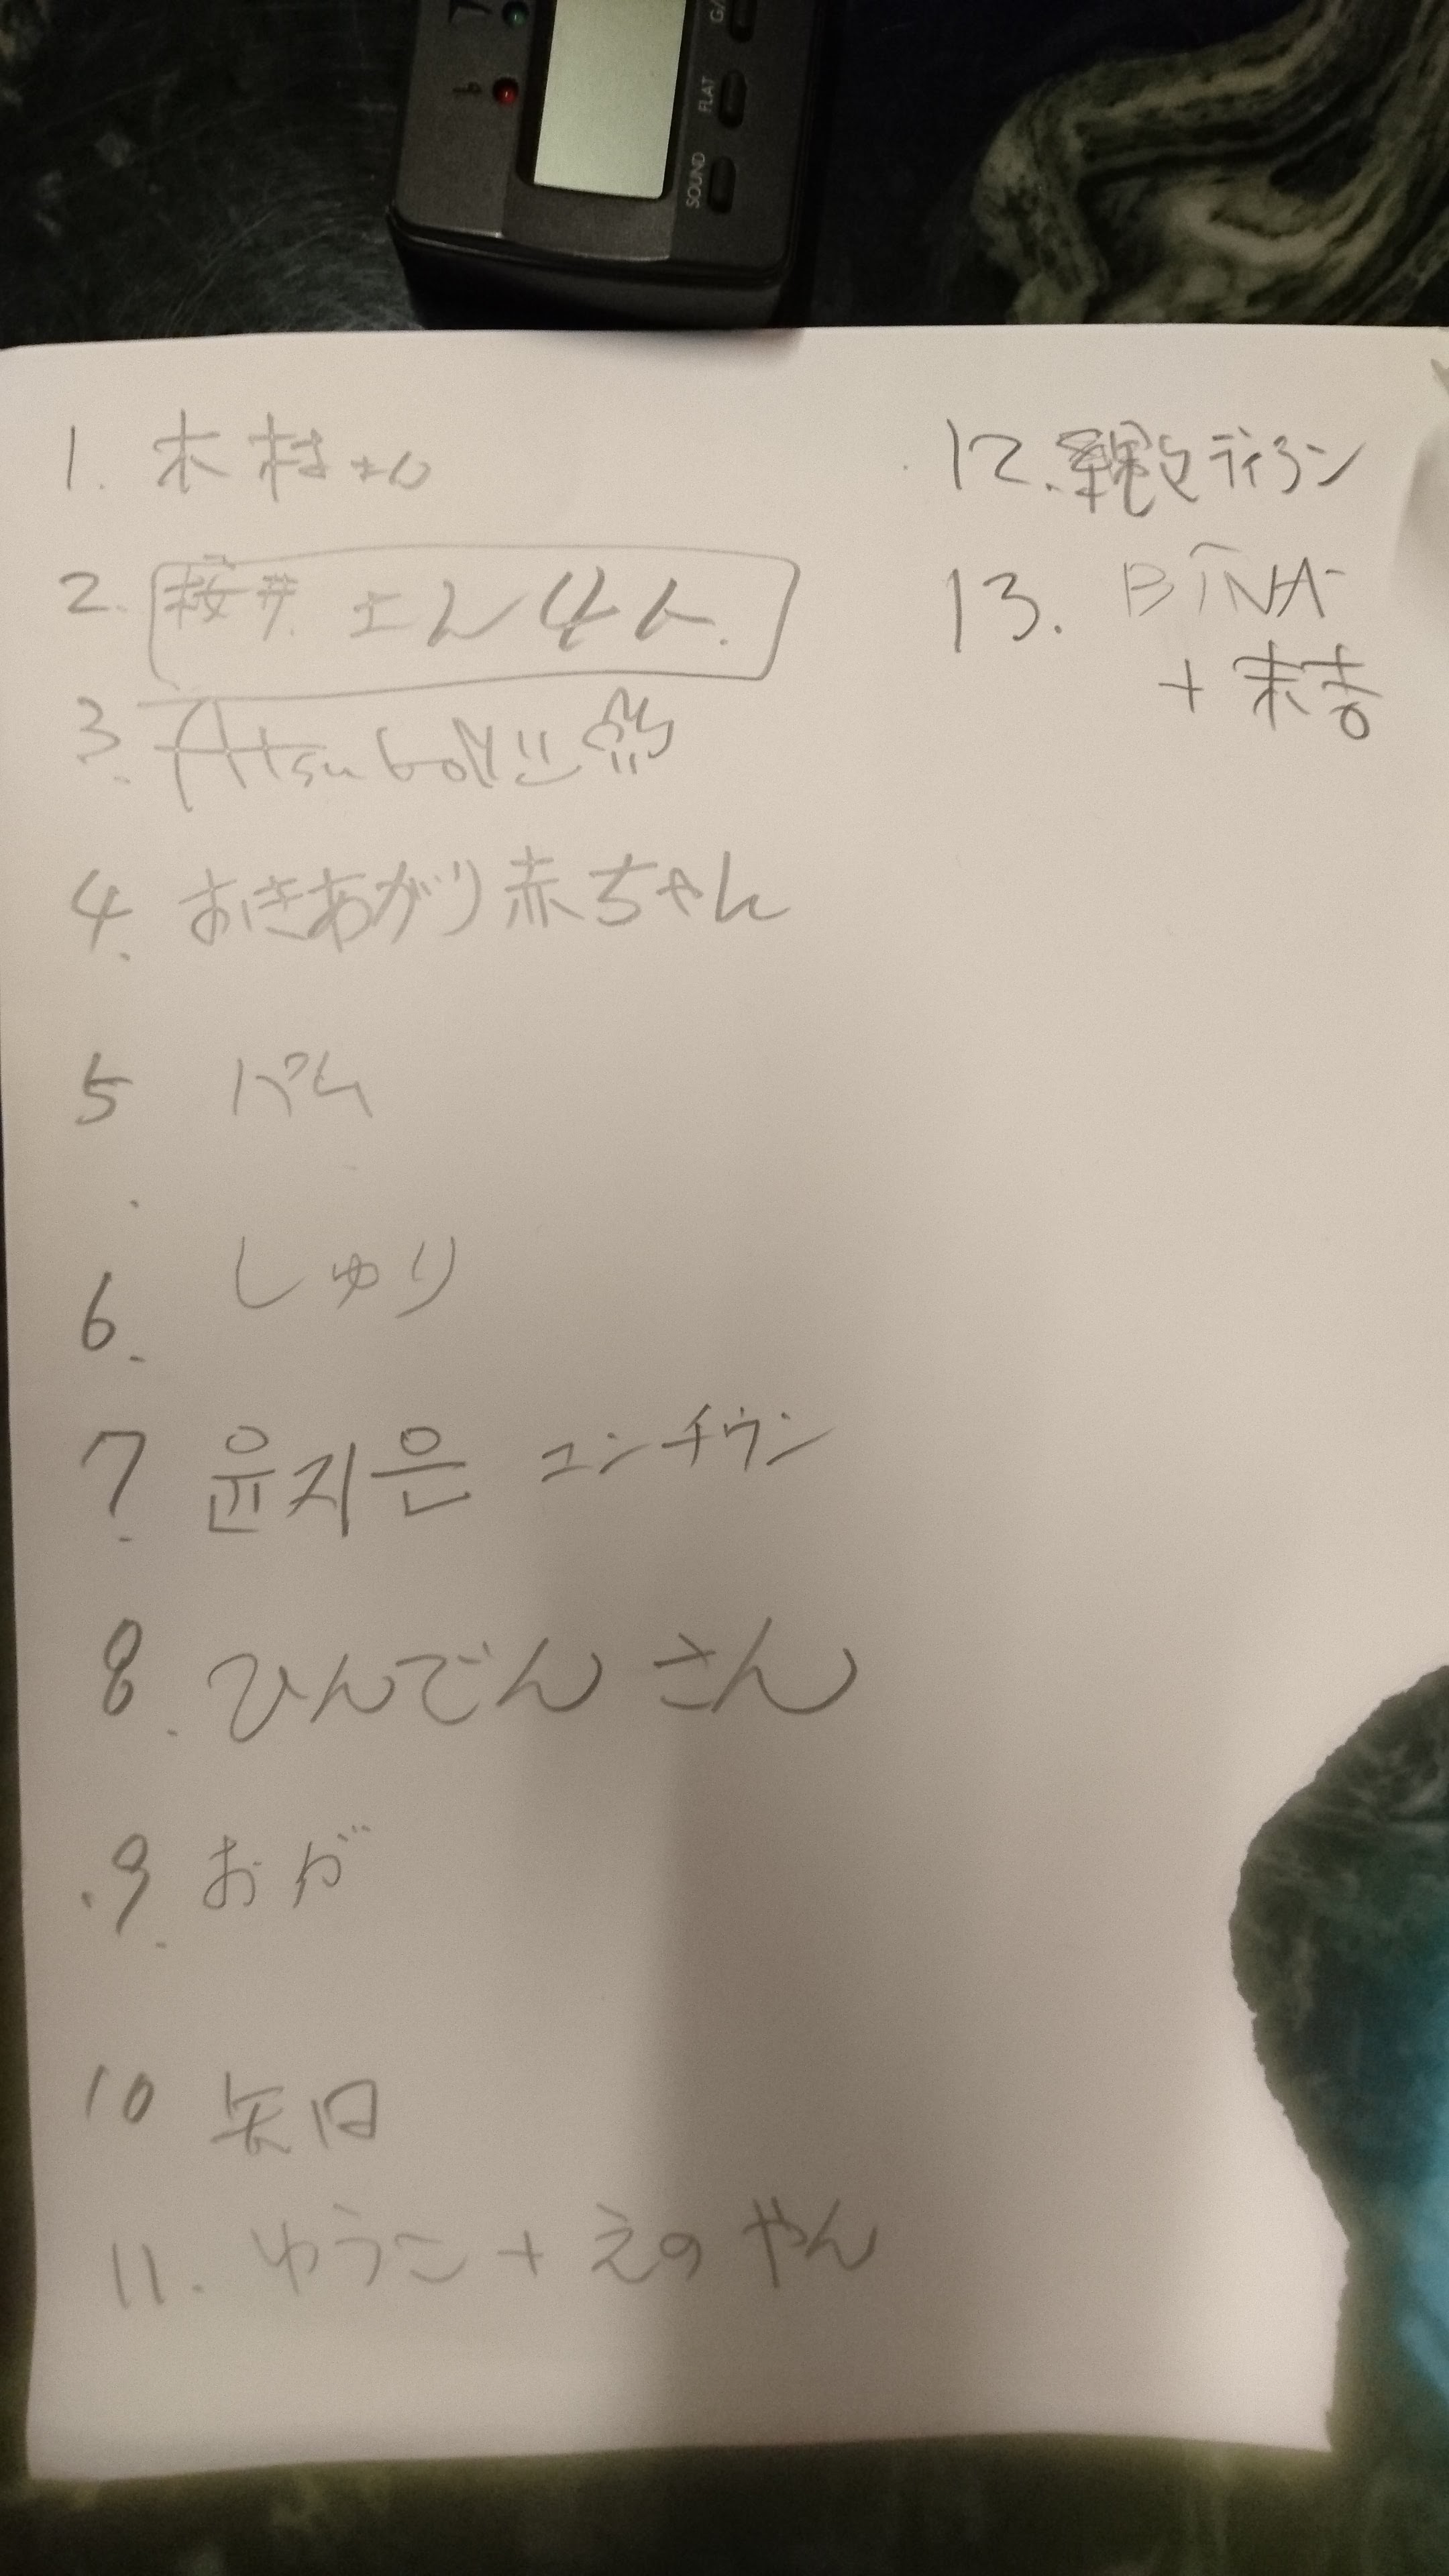 SOUND
FLAT
G/
1. 木村さん
2. 桜井さん4人.
3. Atsu
4. おきあがり赤ちゃん
5 パム
6. しゅり
7. 윤지은 ユンチウン
8. ひんでん さん
9. おが
10 矢口
11. ゆうこ + えのやん
12. ディラン
13. BINA
+ 末吉